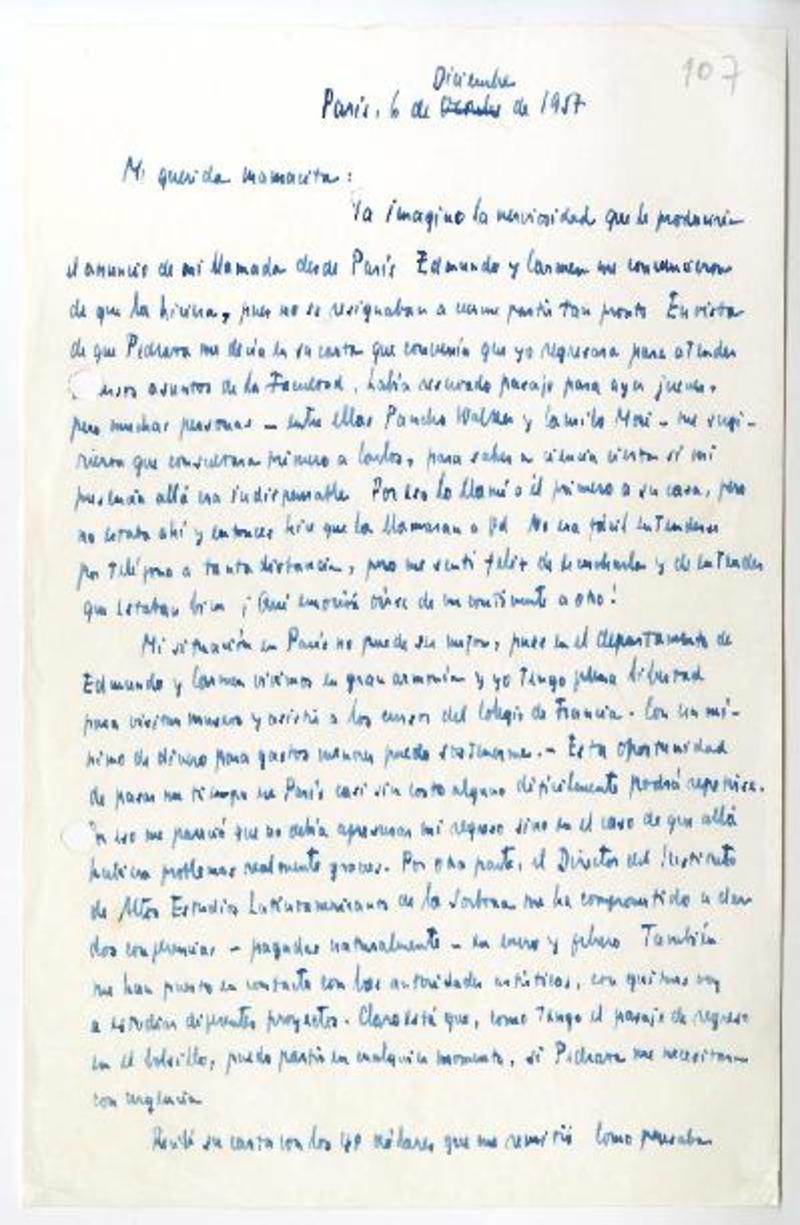 107
Diciembre
París, 6 de Octubre de 1957
Mi querida mamacita:
Ya imagino la nerviosidad que le produciría
el anuncio de mi llamada desde París Edmundo y Carmen me convencieron
de que la hiciera, pues no se resignaban a verme partir tan pronto En vista
de que Pedraza me decía en su carta que convenía que yo regresara para atender
asuntos de la Facultad, había reservado pasaje para ayer jueves,
pero muchas personas - entre ellas Pancho Walker y Camilo Mori - me sugi-
rieron que consultara primero a Carlos, para saber a ciencia cierta si mi
presencia allá era indispensable Por eso lo llamé a él primero a su casa, pero
no estaba ahí y entonces hice que la llamaran a Ud No era fácil entenderse
por teléfono a tanta distancia, pero me sentí feliz de escucharla y de entender
que estaban bien ¡Qué emoción oírse de un continente a otro!
Mi situación en París no puede ser mejor, pues en el departamento de
Edmundo y Carmen vivimos en gran armonía y yo tengo plena libertad
para visitar museos y asistir a los cursos del Colegio de Francia. Con un mí-
nimo de dinero para gastos menores puedo sostenerme.- Esta oportunidad
de pasar un tiempo en París casi sin costo alguno difícilmente podrá repetirse.
Por eso me pareció que no debía apresurar mi regreso sino en el caso de que allá
hubiera problemas realmente graves. Por otra parte, el Director del Instituto
de Altos Estudios Latinoamericanos de la Sorbona me ha comprometido a dar
dos conferencias - pagadas naturalmente - en enero y febrero También
me han puesto en contacto con las autoridades artísticas, con quienes voy
a estudiar diferentes proyectos. Claro está que, como tengo el pasaje de regreso
en el bolsillo, puedo partir en cualquier momento, si Pedraza me necesitara
con urgencia
Recibí su carta con los dólares que me remitió Como pensaba